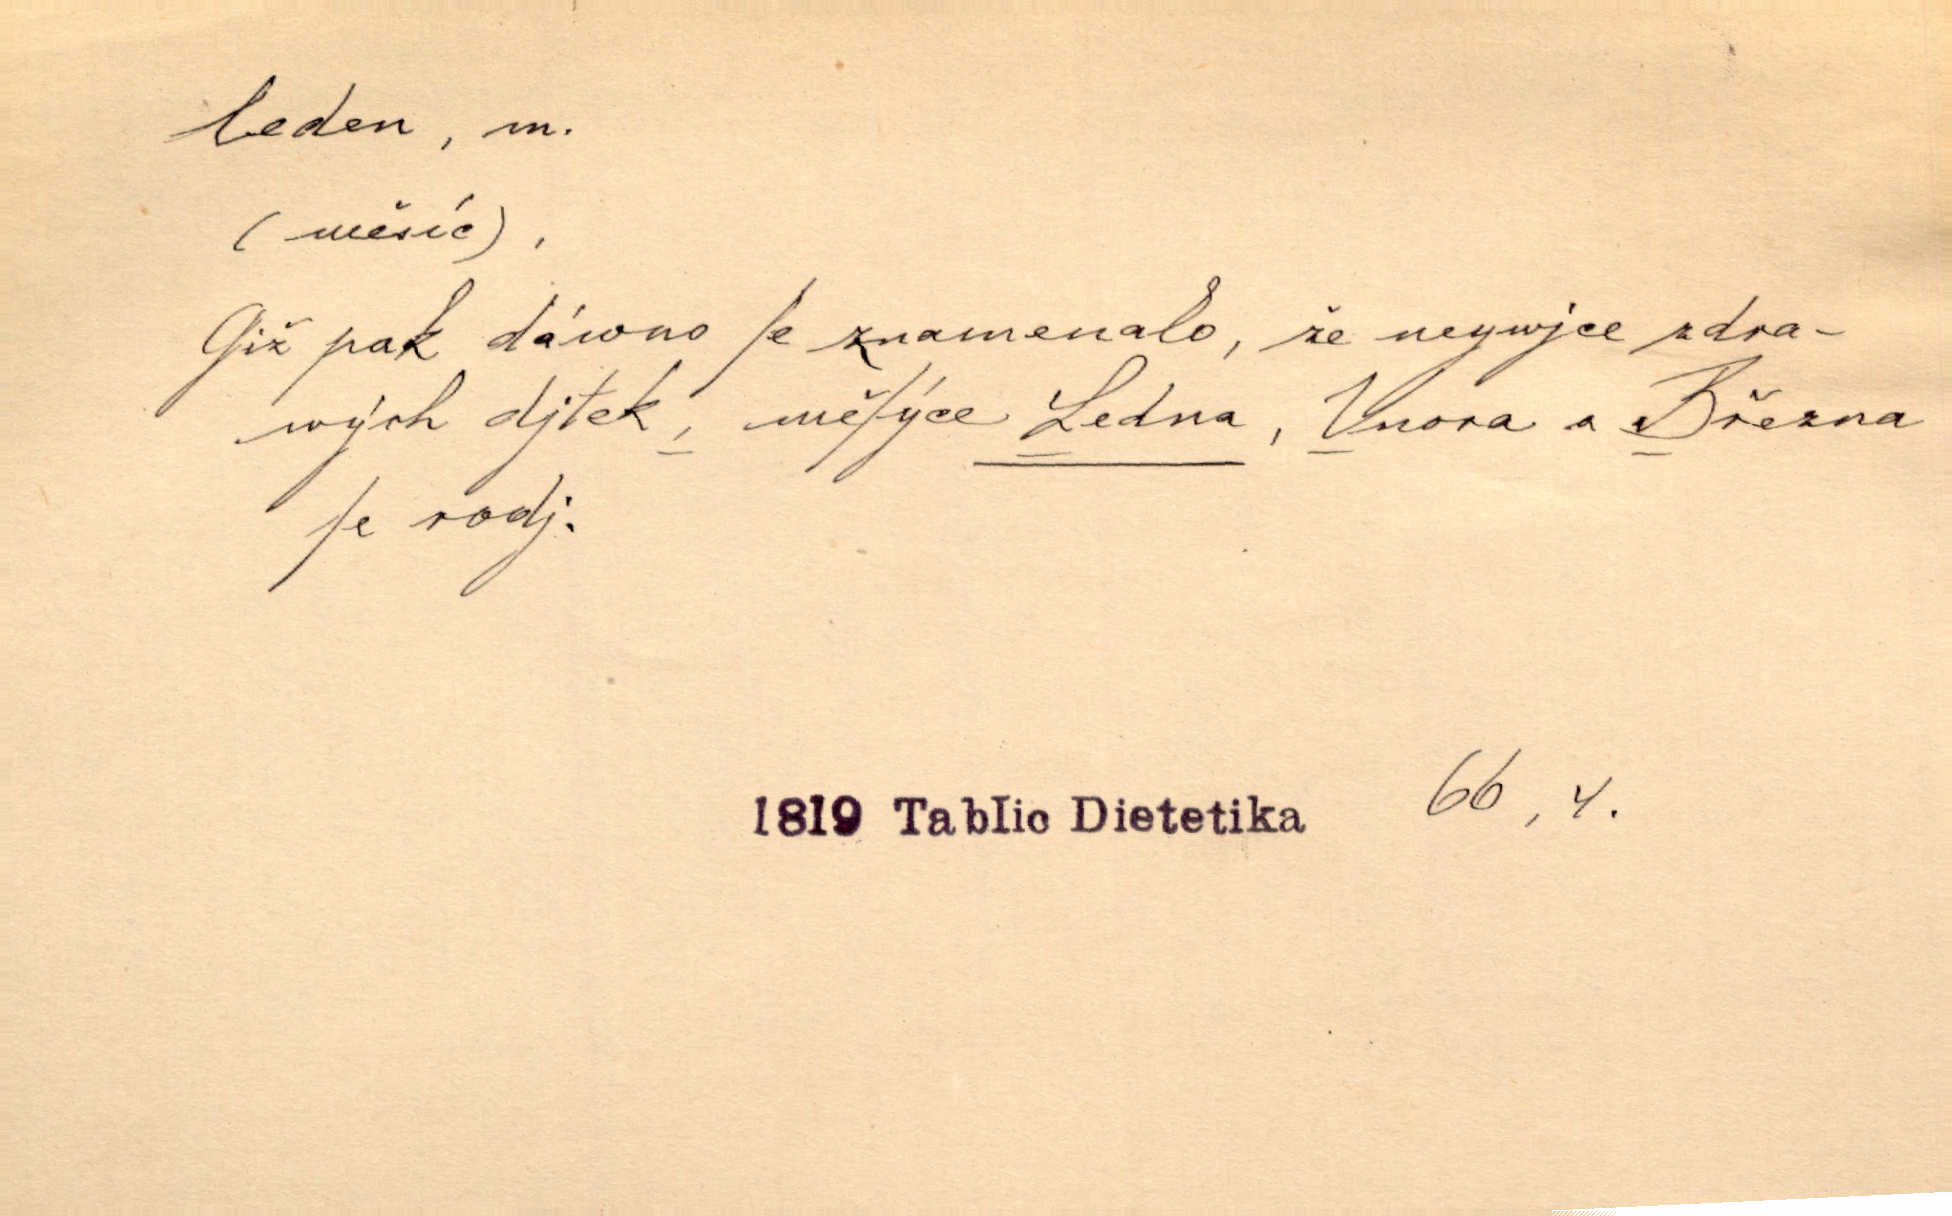 leden, m.
(měsíc),
Giž pak dáwno ſe znamenalo, že neywjce zdra-
wých djtek, měſýce Ledna, Vnora a Března
ſe rodj.
1819 Tablic Dietetika 66, 4.